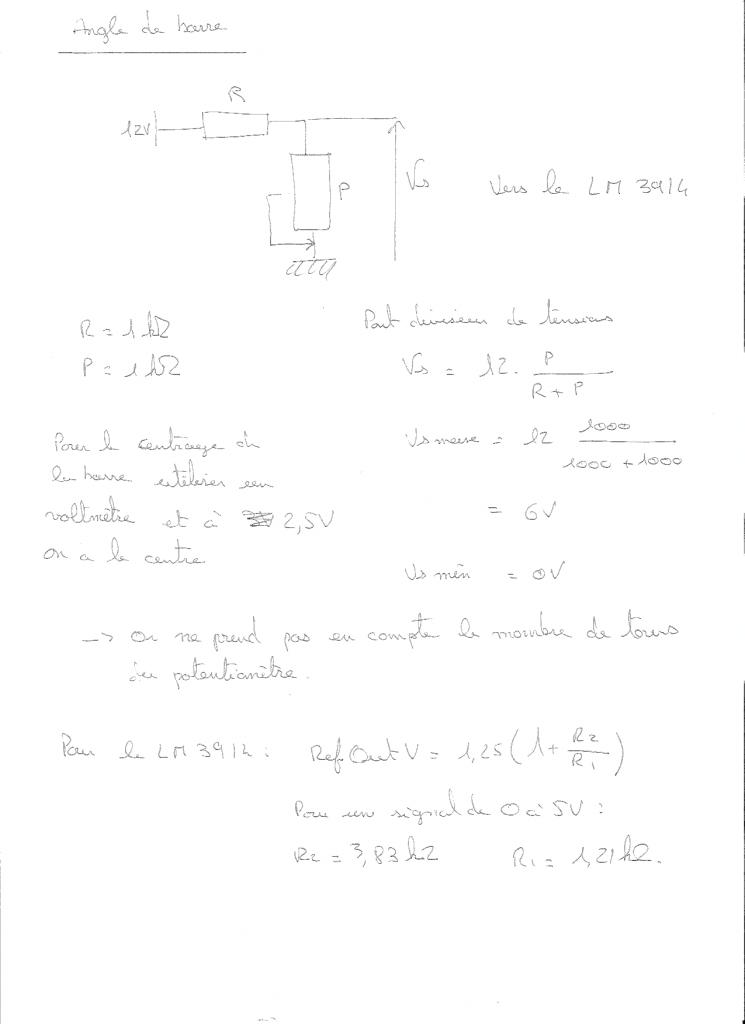 Angle de barre
R
12V
P
Vs
Vers le LM 3914
R = 1 kΩ
P = 1 kΩ
Pont diviseur de tensions
Vs = 12 . P / (R + P)
Pour le centrage de
la barre utiliser un
voltmètre et à 2,5V
on a le centre
Vs max = 12 1000 / (1000 + 1000)
= 6V
Vs min = 0V
-> On ne prend pas en compte le nombre de tours
du potentiomètre.
Pour le LM 3914 : Ref Out V = 1,25 (1 + R2 / R1)
Pour un signal de 0 à 5V :
R2 = 3,83 kΩ R1 = 1,21 kΩ.